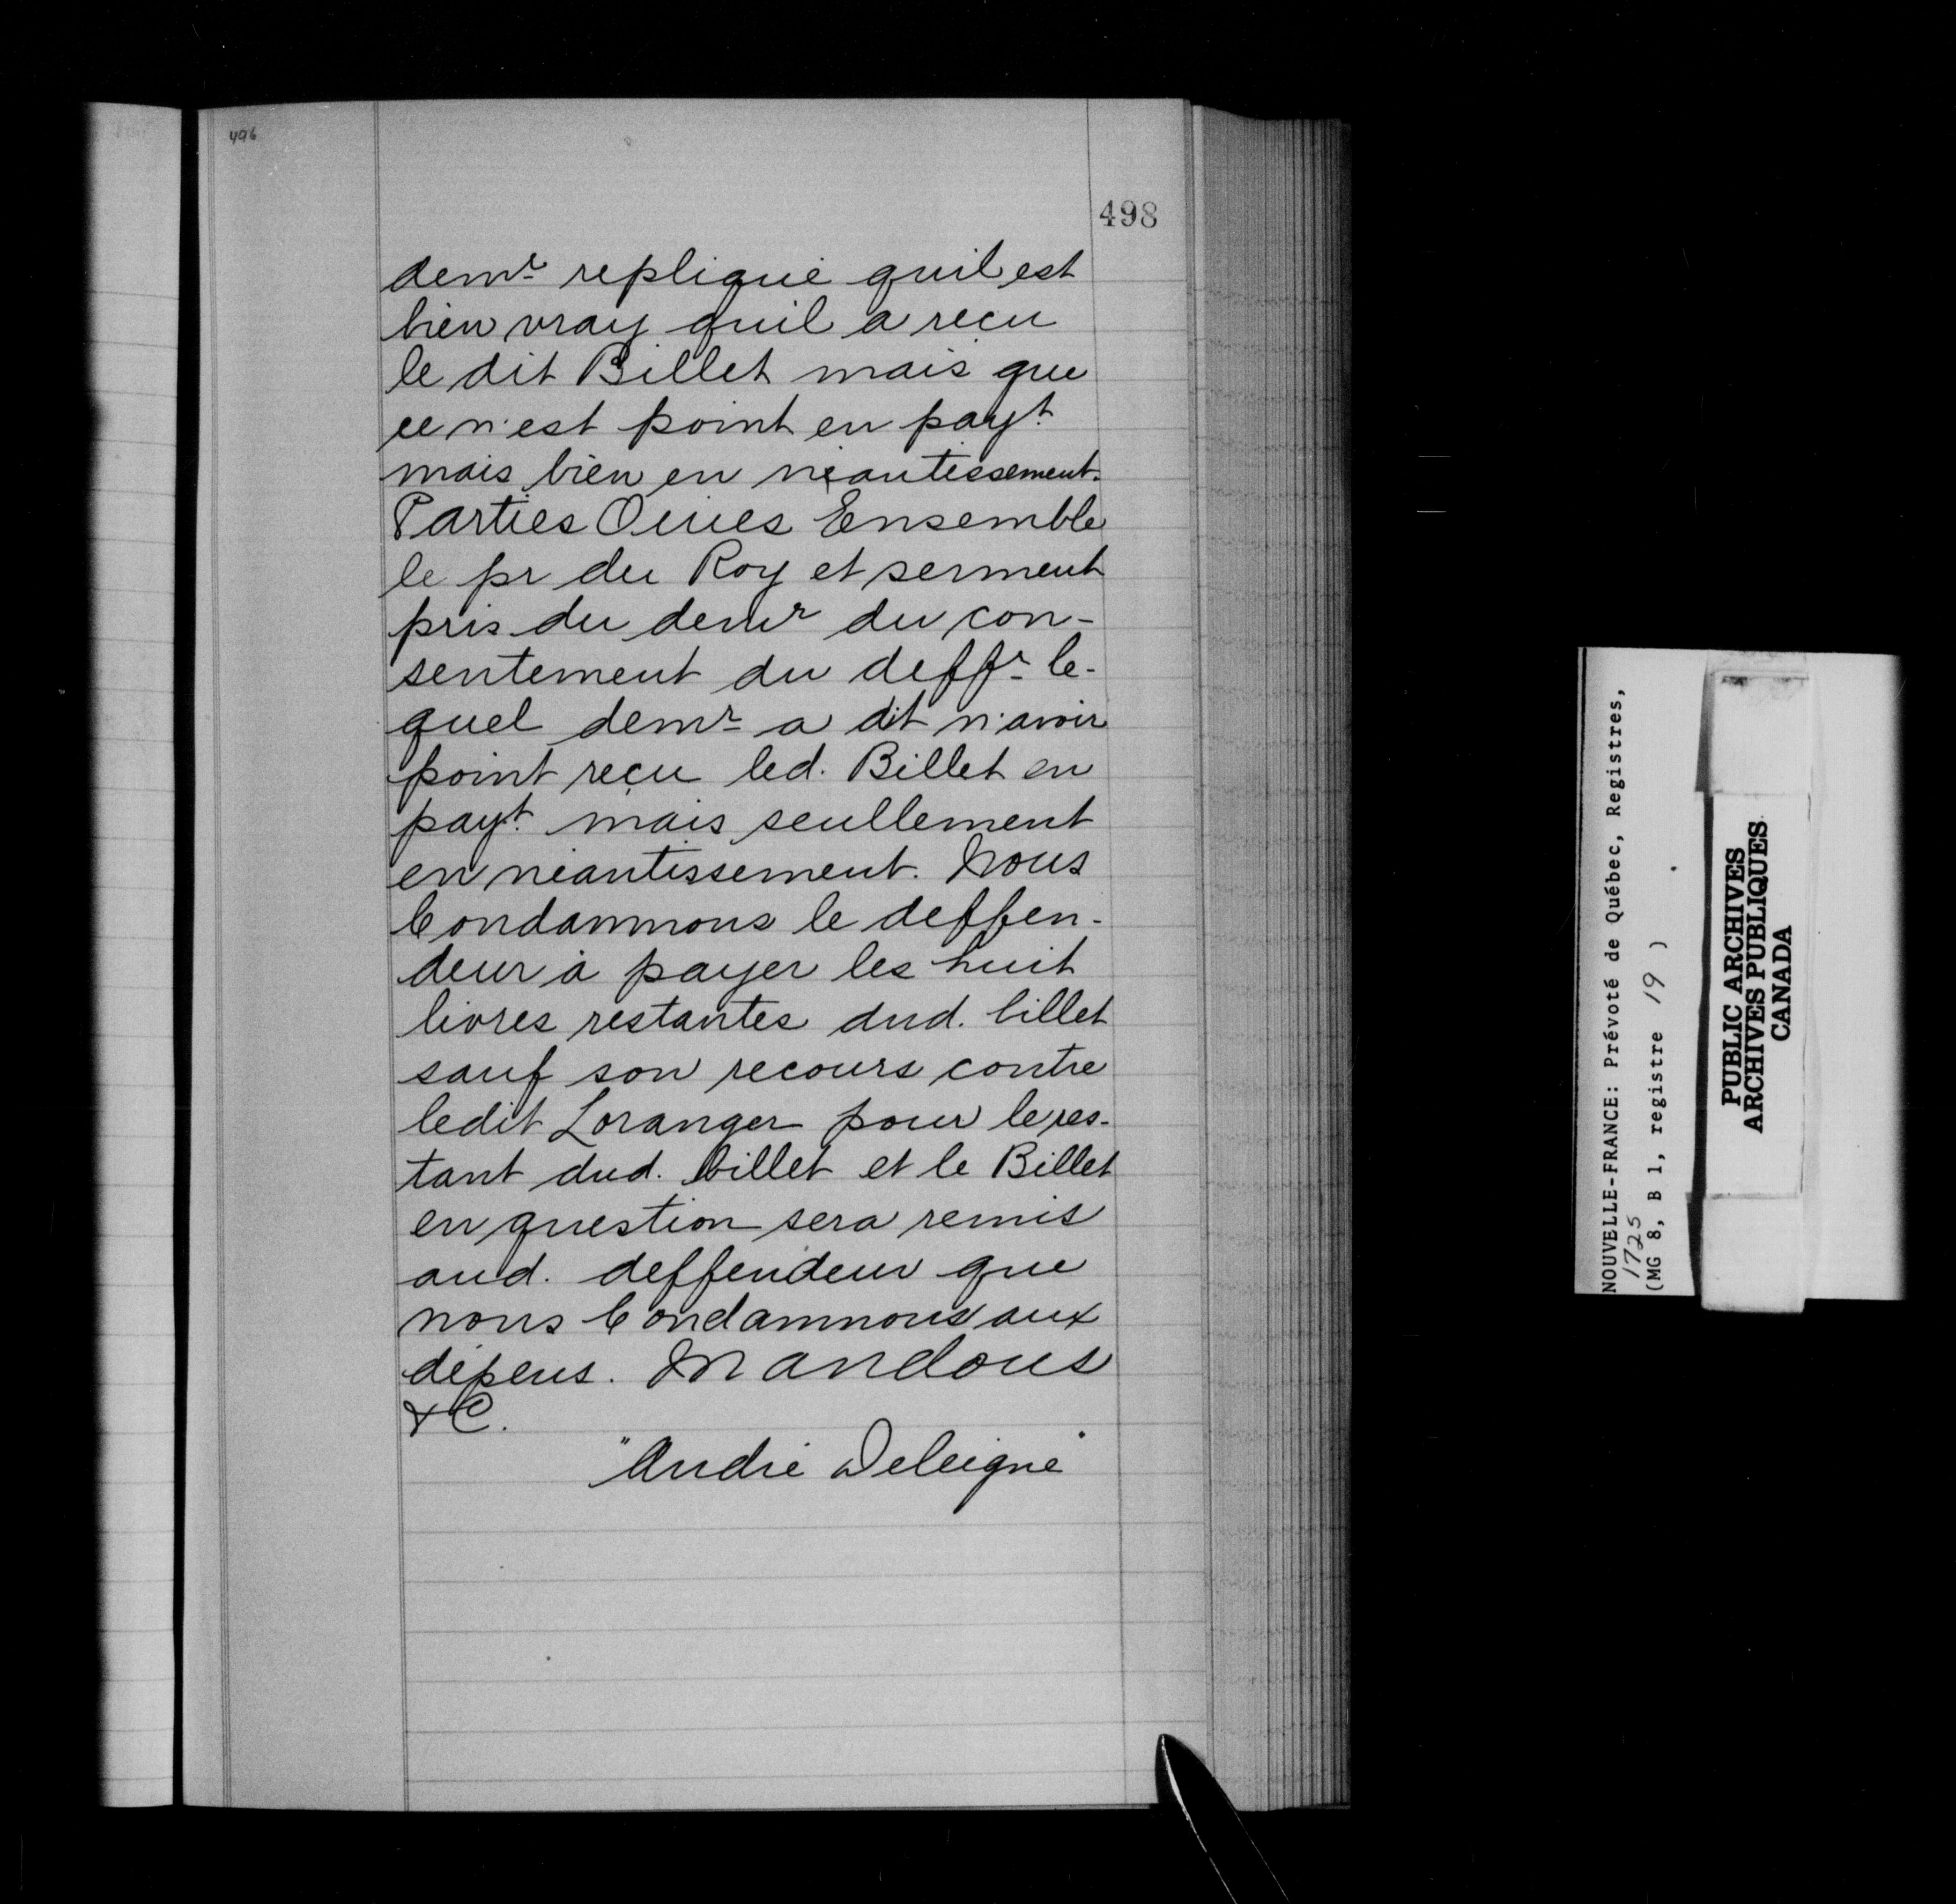 496
498
demr repliqué quil est
bien vray quil a recu
le dit Billet mais que
ce n'est point en payt
mais bien en néantissement.
Parties Ouies Ensemble
le pr du Roy et serment
pris du demr du con-
sentement du deffr le-
quel demr a dit n'avoir
point reçu led. Billet en
payt mais seullement
en néantissement. Nous
Condamnons le deffen-
deur à payer les huit
livres restantes dud. billet
sauf son recours contre
ledit Loranger pour le res-
tant dud. billet et le Billet
en question sera remis
aud. deffendeur que
nous Condamnons aux
dépens. Mandons
&C.
"André Deleigne"
NOUVELLE-FRANCE: Prévoté de Québec, Registres,
1725
(MG 8, B 1, registre 19 )
PUBLIC ARCHIVES
ARCHIVES PUBLIQUES
CANADA